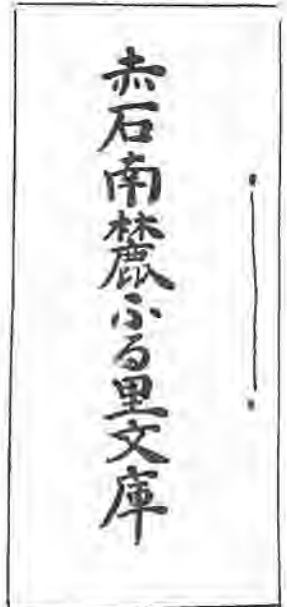 赤石南麓ふる里文庫